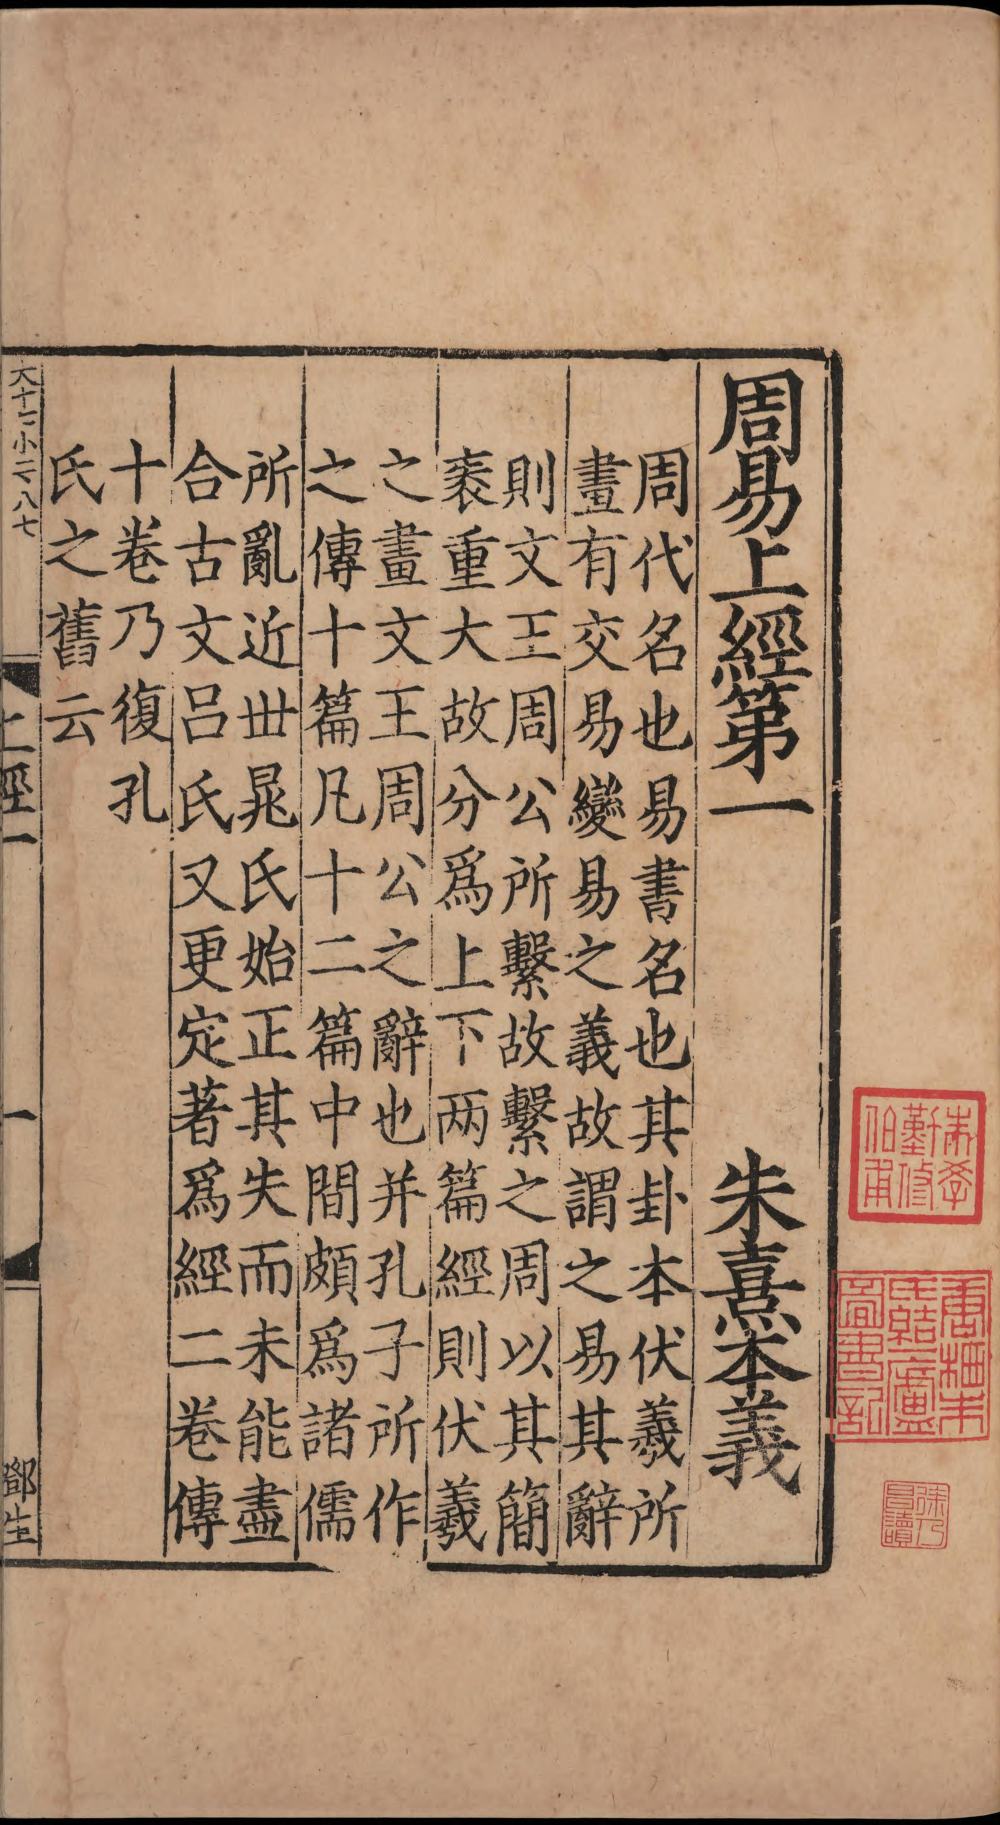 周易上經第一 朱熹本義
周代名也易書名也其卦本伏羲所
畫有交易變易之義故謂之易其辭
則文王周公所繫故繫之周以其簡
袠重大故分爲上下两篇經則伏羲
之畫文王周公之辭也并孔子所作
之傳十篇凡十二篇中間頗爲諸儒
所亂近丗晁氏始正其失而未能盡
合古文吕氏又更定著爲經二卷傳
十卷乃復孔
氏之舊云
大十二小二百八七
上經一
一
鄧生
朱學
勤修
伯甫
唐栖朱
氏結一廬
圖書記
徐乃
昌讀